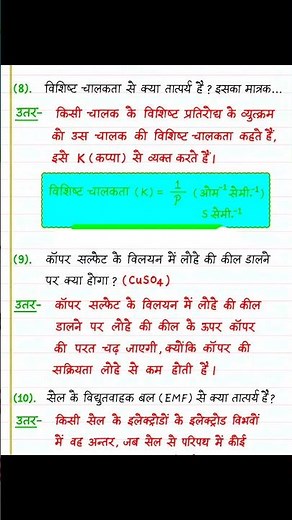 (8). विशिष्ट चालकता से क्या तात्पर्य है ? इसका मात्रक...
उतर- किसी चालक के विशिष्ट प्रतिरोध के व्युत्क्रम
को उस चालक की विशिष्ट चालकता कहते हैं,
इसे K (कप्पा) से व्यक्त करते हैं।
विशिष्ट चालकता (K) = 1/P (ओम⁻¹ सेमी.⁻¹)
S सेमी.⁻¹
(9). कॉपर सल्फेट के विलयन में लोहे की कील डालने
पर क्या होगा ? (CuSO₄)
उतर- कॉपर सल्फेट के विलयन में लोहे की कील
डालने पर लोहे की कील के ऊपर कॉपर
की परत चढ़ जाएगी, क्योंकि कॉपर की
सक्रियता लोहे से कम होती है।
(10). सेल के विद्युतवाहक बल (EMF) से क्या तात्पर्य है?
उतर- किसी सेल के इलेक्ट्रोडों के इलेक्ट्रोड विभवों
में वह अन्तर, जब सेल से परिपथ में कोई